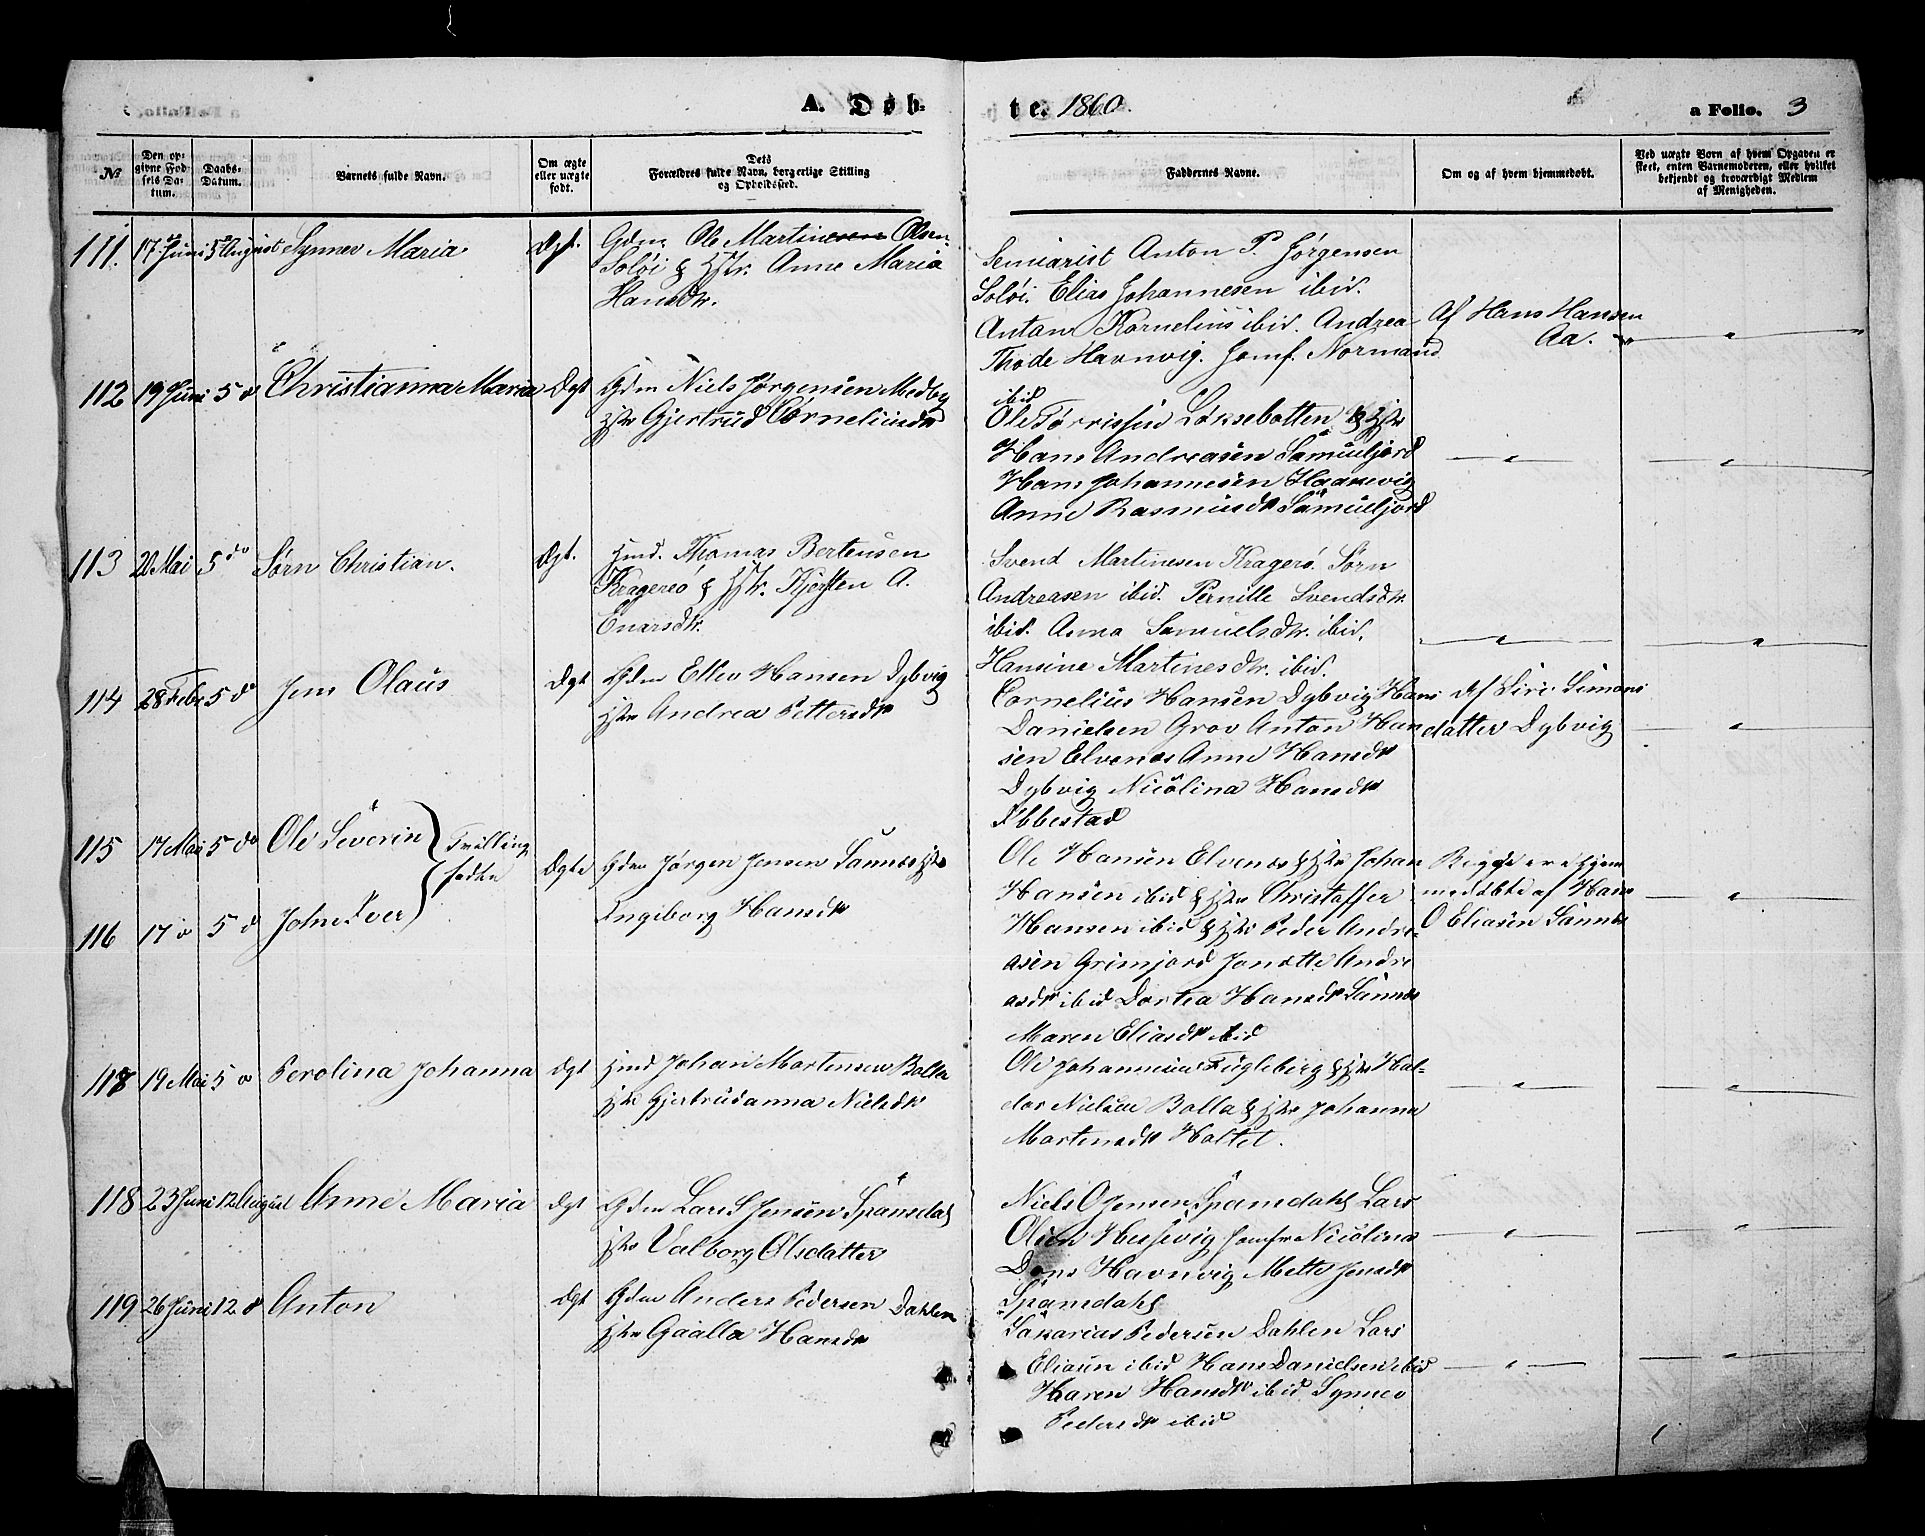 A. Døb-
te. 1860.
a Folio. 3
№
Den op-
givne Fød-
sels Da-
tum.
Daabs-
Datum.
Barnets fulde Navn.
Om ægte
eller uægte
født.
Dets
Forældres fulde Navn, borgerlige Stilling
og Opholdssted.
Faddernes Navne.
Om og af hvem hjemmedøbt.
Ved uægte Børn af hvem Opgaven er
skeet, enten Barnemoderen, eller hvilket
bekjendt og troværdigt Medlem
af Menigheden.
111. 17 Juni 5 August Synnev Maria Ægt. Gdm. Ole Martinesen Olsen
Soløi & Hstr. Anne Maria
Hansdtr.
Seminarist Anton P. Jørgensen
Soløi. Elias Johannesen ibid.
Anton Kornelius ibid. Andrea
Thode Havnvig. Jomf. Normand
ibid
Af Hans Hansen
Aa.
112 19 Juni 5 d Christianna Maria Ægt Gdm Niels Jørgensen Medby
Hstr Gjertrud Corneliusdtr
Ole Tørrissen Løksebotten & Hstr
Hans Andreasen Samueljord
Hans Johannesen Haanevig
Anne Rasmusdtr Samueljord
113 20 Mai 5 do Sørn Christian. Ægt. Hmd. Thomas Berteusen
Kragereó & Hstr. Kjersten A.
Enarsdtr.
Svend Martinesen Kragerø. Sørn
Andreasen ibid. Pernille Svendsdtr.
ibid. Anna Samuelsdtr. ibid.
Hansine Martinesdtr. ibid.
114 28 Febr 5 do Jens Olaus Ægt Gdm Ellev Hansen Dybvig
Hstr Andrea Pettersdtr
Cornelius Hansen Dybvig Hans
Danielsen Grov Anton Han
sen Elvenes Anne Hansdtr
Dybvig Nicolina Hansdtr
Ibbestad
Af Siri Simons
datter Dybvig
115 17 Mai 5 do Ole Severin
Tvilling
fødte
116 17 d 5 d Johan Iver
Ægte Gdm Jørgen Jensen Sannes Hstr
Ingiborg Hansdtr
Ole Hansen Elvenes & Hstr Johan
Hansen ibid & Hstr Christoffer
Hansen ibid & Hstr Peder Andre-
asen Grimjord Jonette Andre
asdtr ibid Dortea Hansdtr Sannes
Maren Eliasdtr ibid
Begge ere hjem
medøbte af Hans
O Eliasen Sannes
117 19 Mai 5 d Perolina Johanna Ægt Hmd Johan Martensen Bolla
Hstr Gjertrudanna Nielsdtr
Ole Johannesen Fugleberg & Hstr Hal-
dor Nielsen Bolla & Hstr Johanna
Martensdtr Holtet.
118 23 Juni 12 August Anne Maria Ægt Gdm Lars S Jensen Spansdal
Hstr Valborg Olsdatter
Niels O Jensen Spansdahl Lars
Olsen Hessevig Jomfr Nicolina
Dons Havnvig Mette Jensdtr
Spansdahl
119 26 Juni 12 d Anton Ægt Gdm Anders Pedersen Dahlen
Hstr Gaalla Hansdtr
Sakarias Pedersen Dahlen Lars
Eliasen ibid Hans Danielsen ibid
Karen Hansdtr ibid Synnev
Pedersdtr ibid